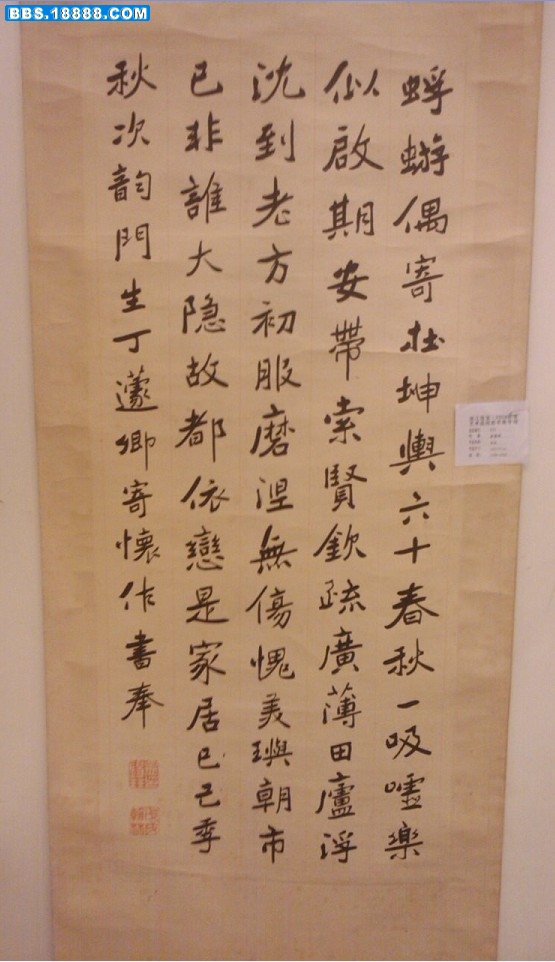 BBS.18888.COM
蜉蝣偶寄在坤輿六十春秋一吸噓樂
似啟期安帶索賢欽疏廣薄田廬浮
沈到老方初服磨涅無傷愧美璵朝市
已非誰大隐故都依戀是家居己巳季
秋次韵門生丁蘧卿寄懷作書奉